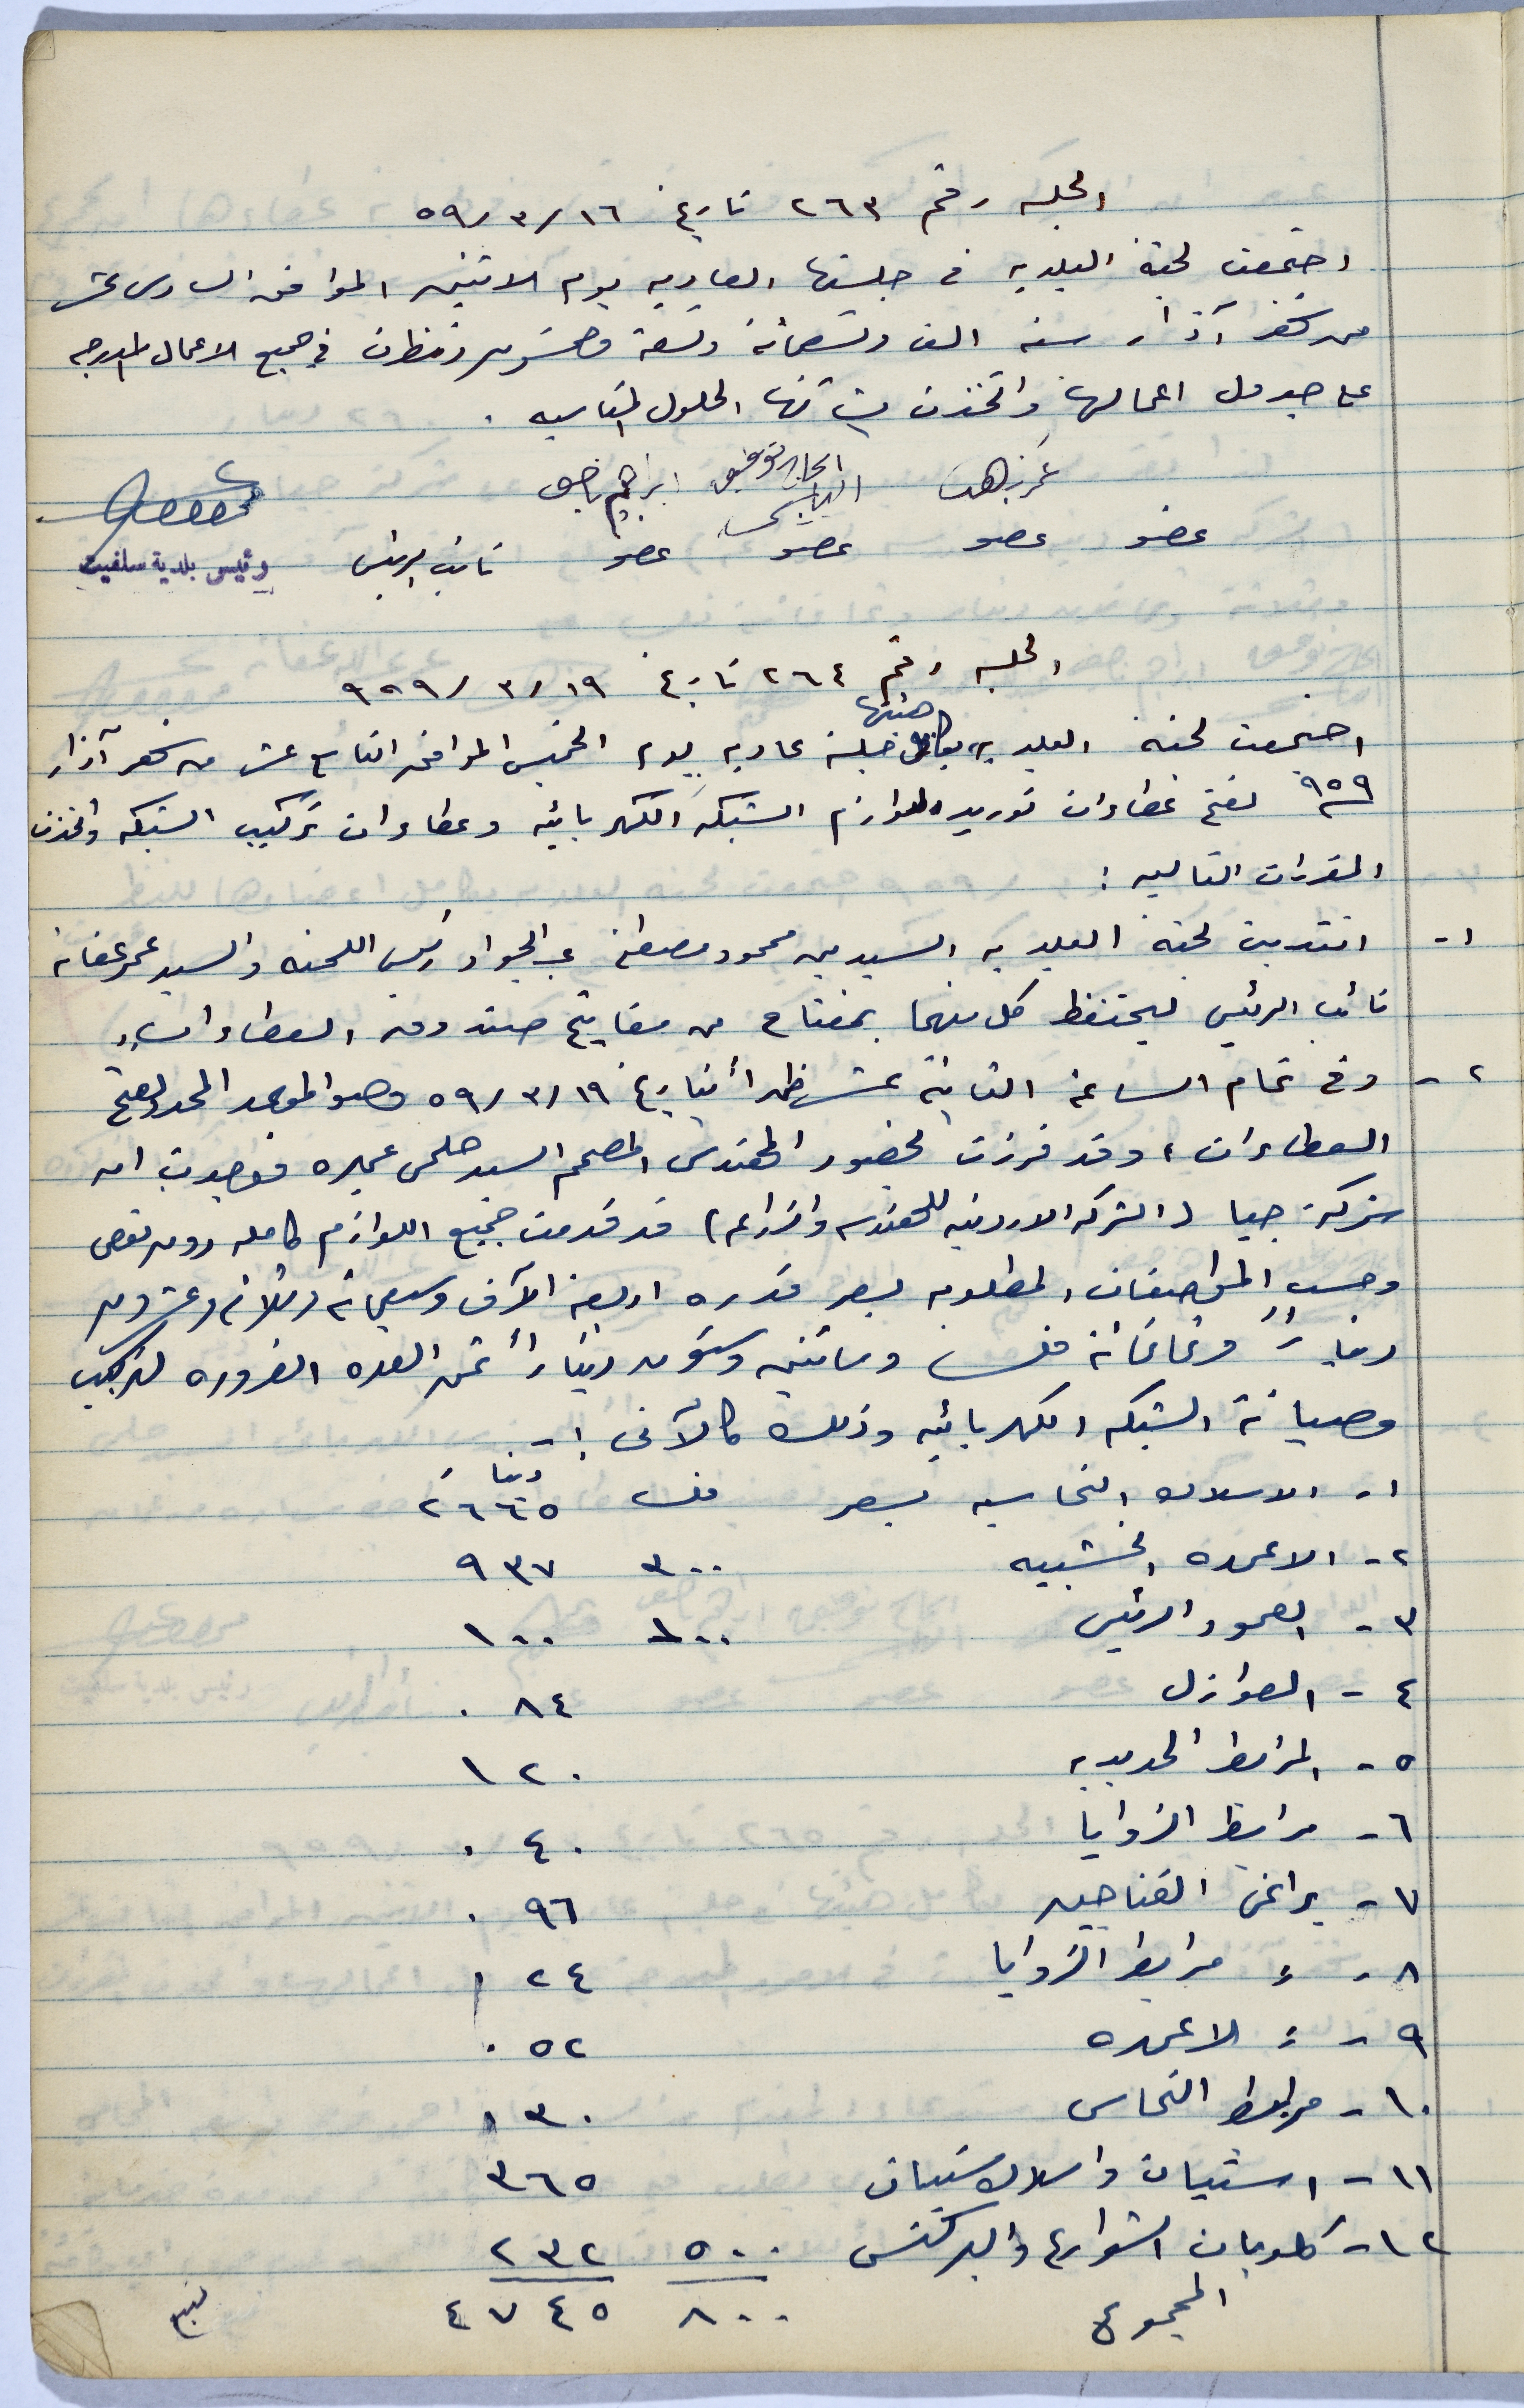 الجلسه رقم ٢٦٣ تاريخ ١٦/٣/٥٩
اجتمعت لجنة البلديه في جلستها العاديه يوم الاثنين الموافق السادس عشر
من شهر آذار سنه الف وتسعمائة وتسعة وخمسون ونظرت في جميع الاعمال المدرجه
على جدول اعمالها واتخذت بشأنها الحلول المناسبه .
الحاج توفيق ابراهيم
عضو عضو عضو عضو نائب الرئيس رئيس بلدية سلفيت
الجلسه رقم ٢٦٤ تاريخ ١٩/٣/٩٥٩
اجتمعت لجنة البلديه بكامل هيئتها جلسة عاديه يوم الخميس الموافق التاسع عشر من شهر آذار
٩٥٩ لفتح عطاءات توريد لوازم الشبكه الكهربائيه وعطاءات تركيب الشبكه واتخذت
المقررات التاليه :
١- انتدبت لجنة البلديه السيدين محمود مصطفى عبد الجواد رئيس اللجنه والسيد عمر عفانه
نائب الرئيس ليحتفظ كل منهما بمفتاح من مفاتيح صندوق العطاءات
٢- وفي تمام الساعة الثانية عشر ظهراً بتاريخ ١٩/٣/٥٩ وهو الموعد المحدد لفتح
العطاءات ، وقد فرزت بحضور المهندس المصمم السيد حلمي عميره فوجدت ان
شركة جيا (الشركه الاردنيه للهندسه والزراعه) قد قدمت جميع اللوازم كامله دون نقص
وحسب المواصفات المطلوبه بسعر قدره اربعة الآف وسبعمائه وثلاثه وعشرون
ديناراً وثمانمائة فلس ومائتين وستون ديناراً ثمن العده الضروره لتركيب
وصيانة الشبكه الكهربائيه وذلك كالآتي :-
١- الاسلاك النحاسيه بسعر فلس دينار ٢٦٦٥
٢- الاعمده الخشبيه ٣٠٠ ٩٣٧
٣- العمود الرئيس ١٠٠ ١٠٠
٤- العوازل ٠٨٤
٥- المرابط الحديديه ١٢٠
٦- مرابط الزوايا ٠٤٠
٧- براغي الفناجين ٠٩٦
٨- = مرابط الزوايا ٠٢٤
٩- = الاعمده ٠٥٢
١٠- مرابط النحاس ٠٣٠
١١- استيات واسلاك ستيات ٣٦٥
١٢- كلوبات الشوارع والبركتس ٥٠٠ ٢٣٢
المجموع ٨٠٠ ٤٧٤٥
يتبع